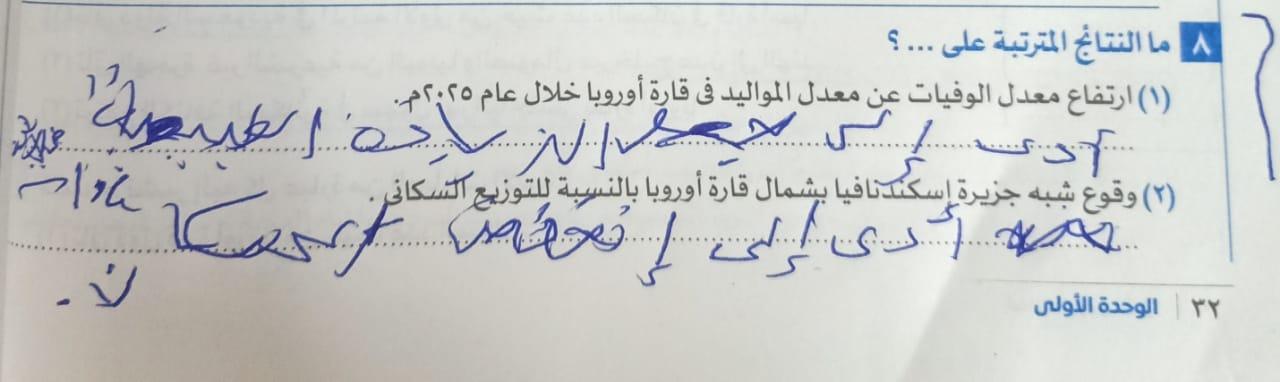 ٨ ما النتائج المترتبة على ... ؟
(١) ارتفاع معدل الوفيات عن معدل المواليد فى قارة أوروبا خلال عام ٢٠٢٥م.
أدى إلى الزيادة الطبيعية
(٢) وقوع شبه جزيرة إسكندنافيا بشمال قارة أوروبا بالنسبة للتوزيع السكانى.
أدى إلى إنخفاض السكا
ن.
٣٢ | الوحدة الأولى